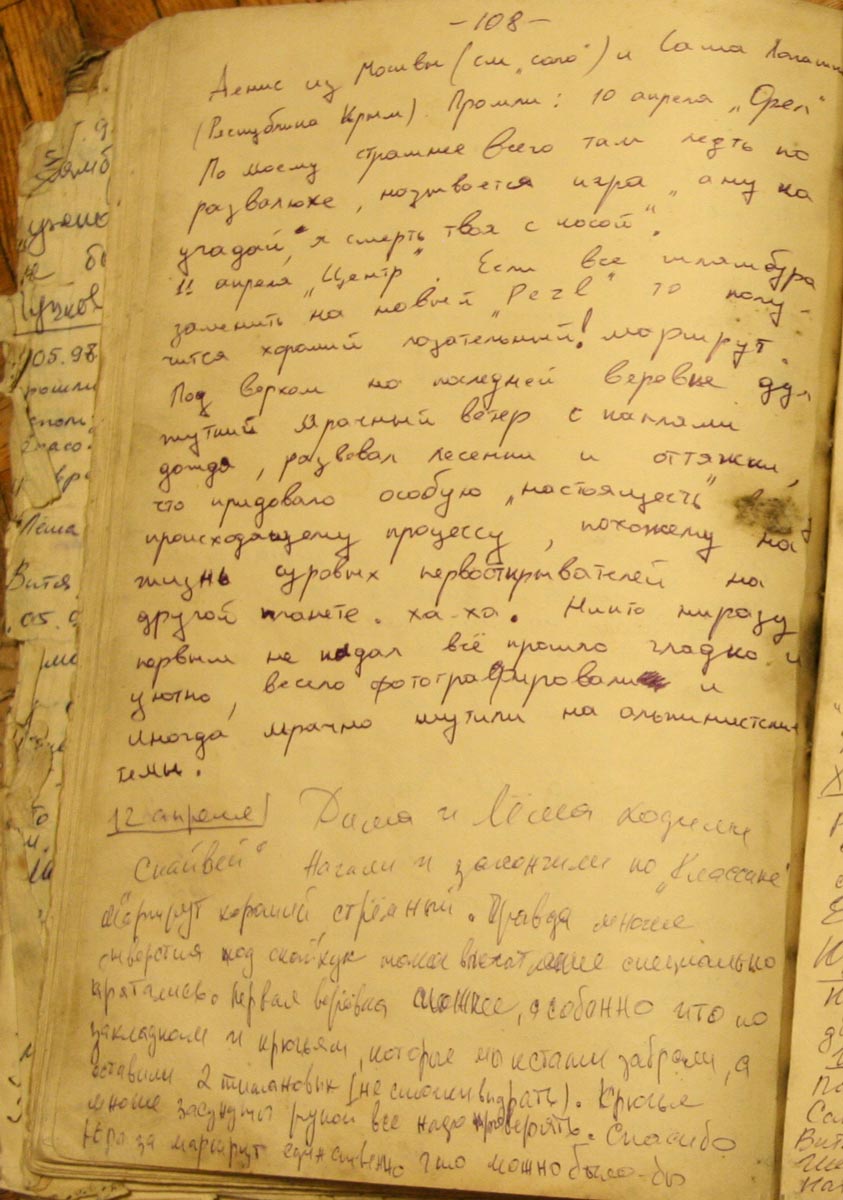 -108-
Денис из Москвы (см. „соло") и Саша Лапашин
(Республика Крым). Прошли: 10 апреля „Орёл"
По моему страшнее всего там лезть по
развалюхе, называется игра „а ну ка
угадай, я смерть твоя с косой".
11 апреля „Центр". Если все шлямбура
заменить на новый „Pezl" то полу-
чится хороший лазательный! маршрут.
Под верхом на последней веревке ду-
жуткий мрачный ветер с каплями
дождя, развевал лесенки и оттяжки,
что придовало особую „настоящесть"
происходящему процессу, похожему на
жизнь суровых первооткрывателей на
другой планете. ха-ха. Никто ни разу
первым не падал всё прошло гладко и
уютно, весело фотографировали и
иногда мрачно шутили на альпинистские
темы.
12 апреля Дима и Лёша ходили
„Скайвей" Начали и закончили по „Классике"
Маршрут хороший, стрёмный. Правда многие
отверстия под скайхук специально
прятались. Первая верёвка сложнее, особенно что по
закладкам и крючьям, которые мы кстати забрали, а
оставили 2 титановых (не смогли выдрать). Крючья
многие засунуты рукой все надо проверять. Спасибо
за маршрут единственно что можно было-бы
5
05.98
ошли
Леша
Витя
05.